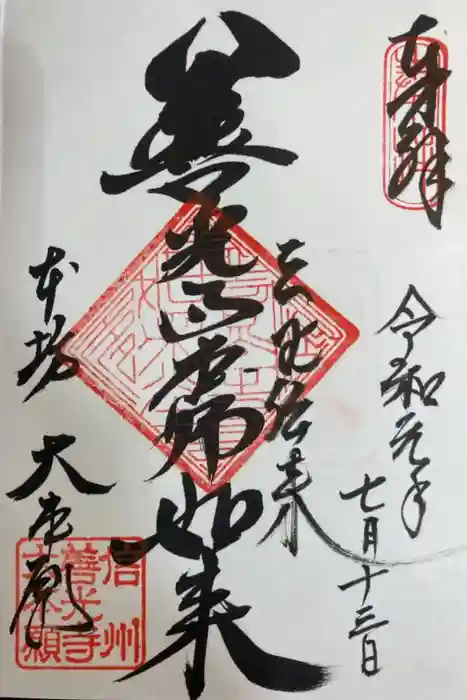 奉拝
令和元年
七月十三日
三国伝来
善光如来
本坊 大本願
信州
善光寺
大本願